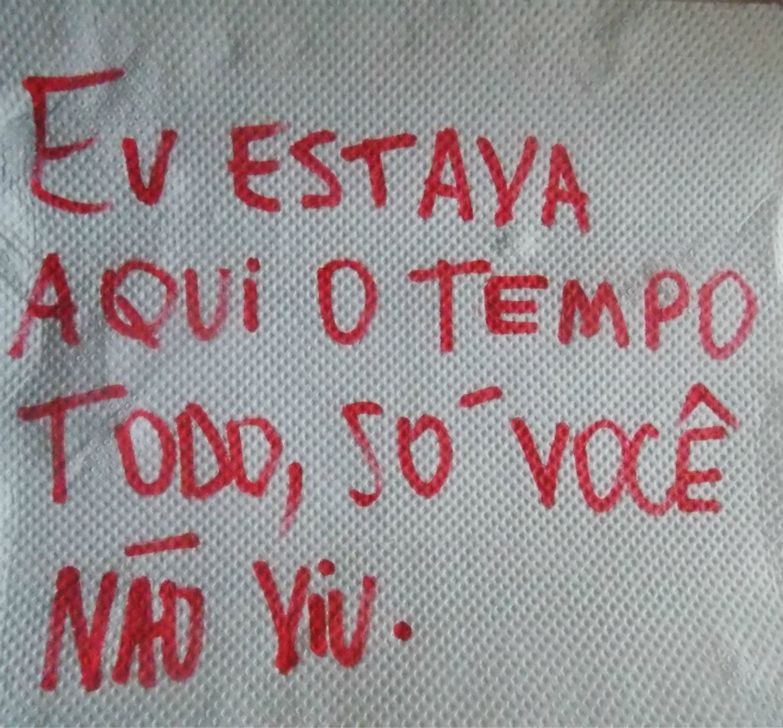 EU ESTAVA
AQUI O TEMPO
TODO, SÓ VOCÊ
NÃO VIU.